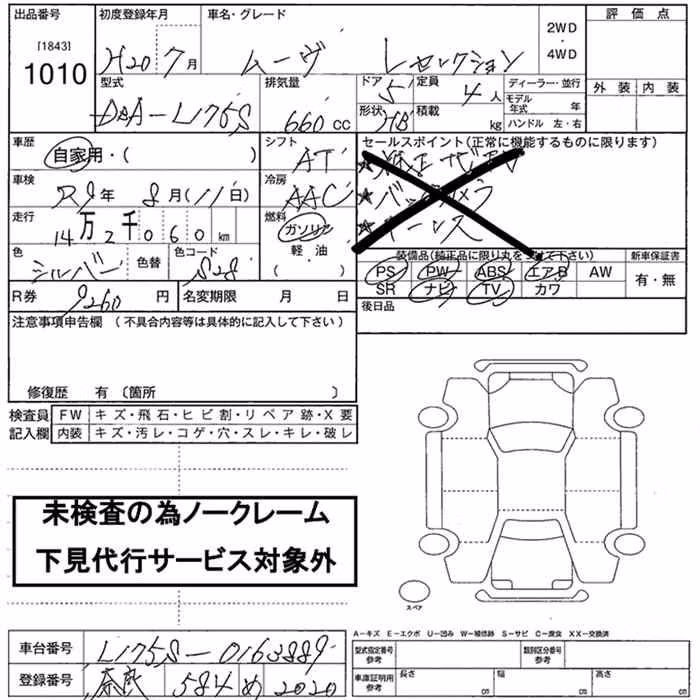 出品番号 初度登録年月 車名・グレード 2WD・4WD 評価点
[1843]
1010 H20 7月 ムーヴ Lセレクション
型式 排気量 ドア 5 定員 4人 ディーラー・並行 外装 内装
DBA-L175S 660cc 形状 HB 積載 kg モデル年式 年
ハンドル 左・右
車歴 自家用・( ) シフト AT セールスポイント(正常に機能するものに限ります)
★純正ナビTV
車検 R9年 8月(11日) 冷房 AAC ★バックカメラ
走行 14万2千060km 燃料 ガソリン・軽油( ) ★キーレス
色 シルバー 色替 色コード S28 装備品(純正品に限り丸をつけて下さい) 新車保証書
PS PW ABS エアB AW 有・無
R券 9260円 名変期限 月 日 SR ナビ TV カワ
注意事項申告欄(不具合内容等は具体的に記入して下さい) 後日品
修復歴 有〔箇所 〕
検査員記入欄 FW キズ・飛石・ヒビ割・リペア跡・X要
内装 キズ・汚レ・コゲ・穴・スレ・キレ・破レ
未検査の為ノークレーム
下見代行サービス対象外
スペア
A-キズ E-エクボ U-凹み W-補修跡 S-サビ C-腐食 XX-交換済
車台番号 L175S-0163889 型式指定番号 参考 類別区分番号 参考
登録番号 奈良 584 め 2020 車庫証明用 参考 長さ cm 幅 cm 高さ cm